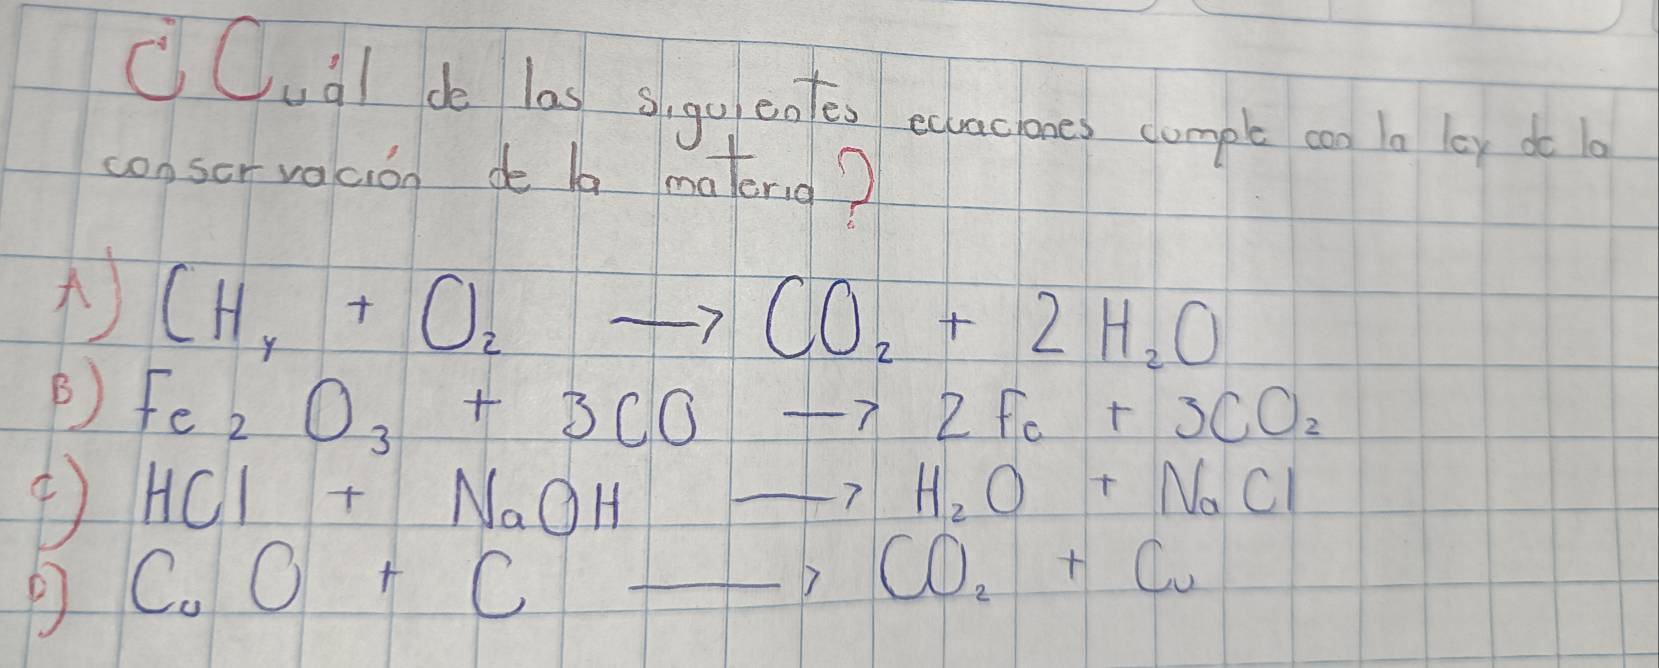 ¿Cuál de las siguientes ecuaciones cumple con la ley de la
conservación de la materia?
A) CH₄ + O₂ → CO₂ + 2 H₂O
B) Fe₂ O₃ + 3CO → 2 Fe + 3CO₂
C) HCl + NaOH → H₂O + NaCl
D) Cu O + C → CO₂ + Cu